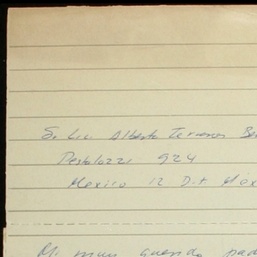 Sr. Lic. Alberto Terrones Be
Pestalozzi 924
Mexico 12 D.F. Méx
Mi muy querido pad